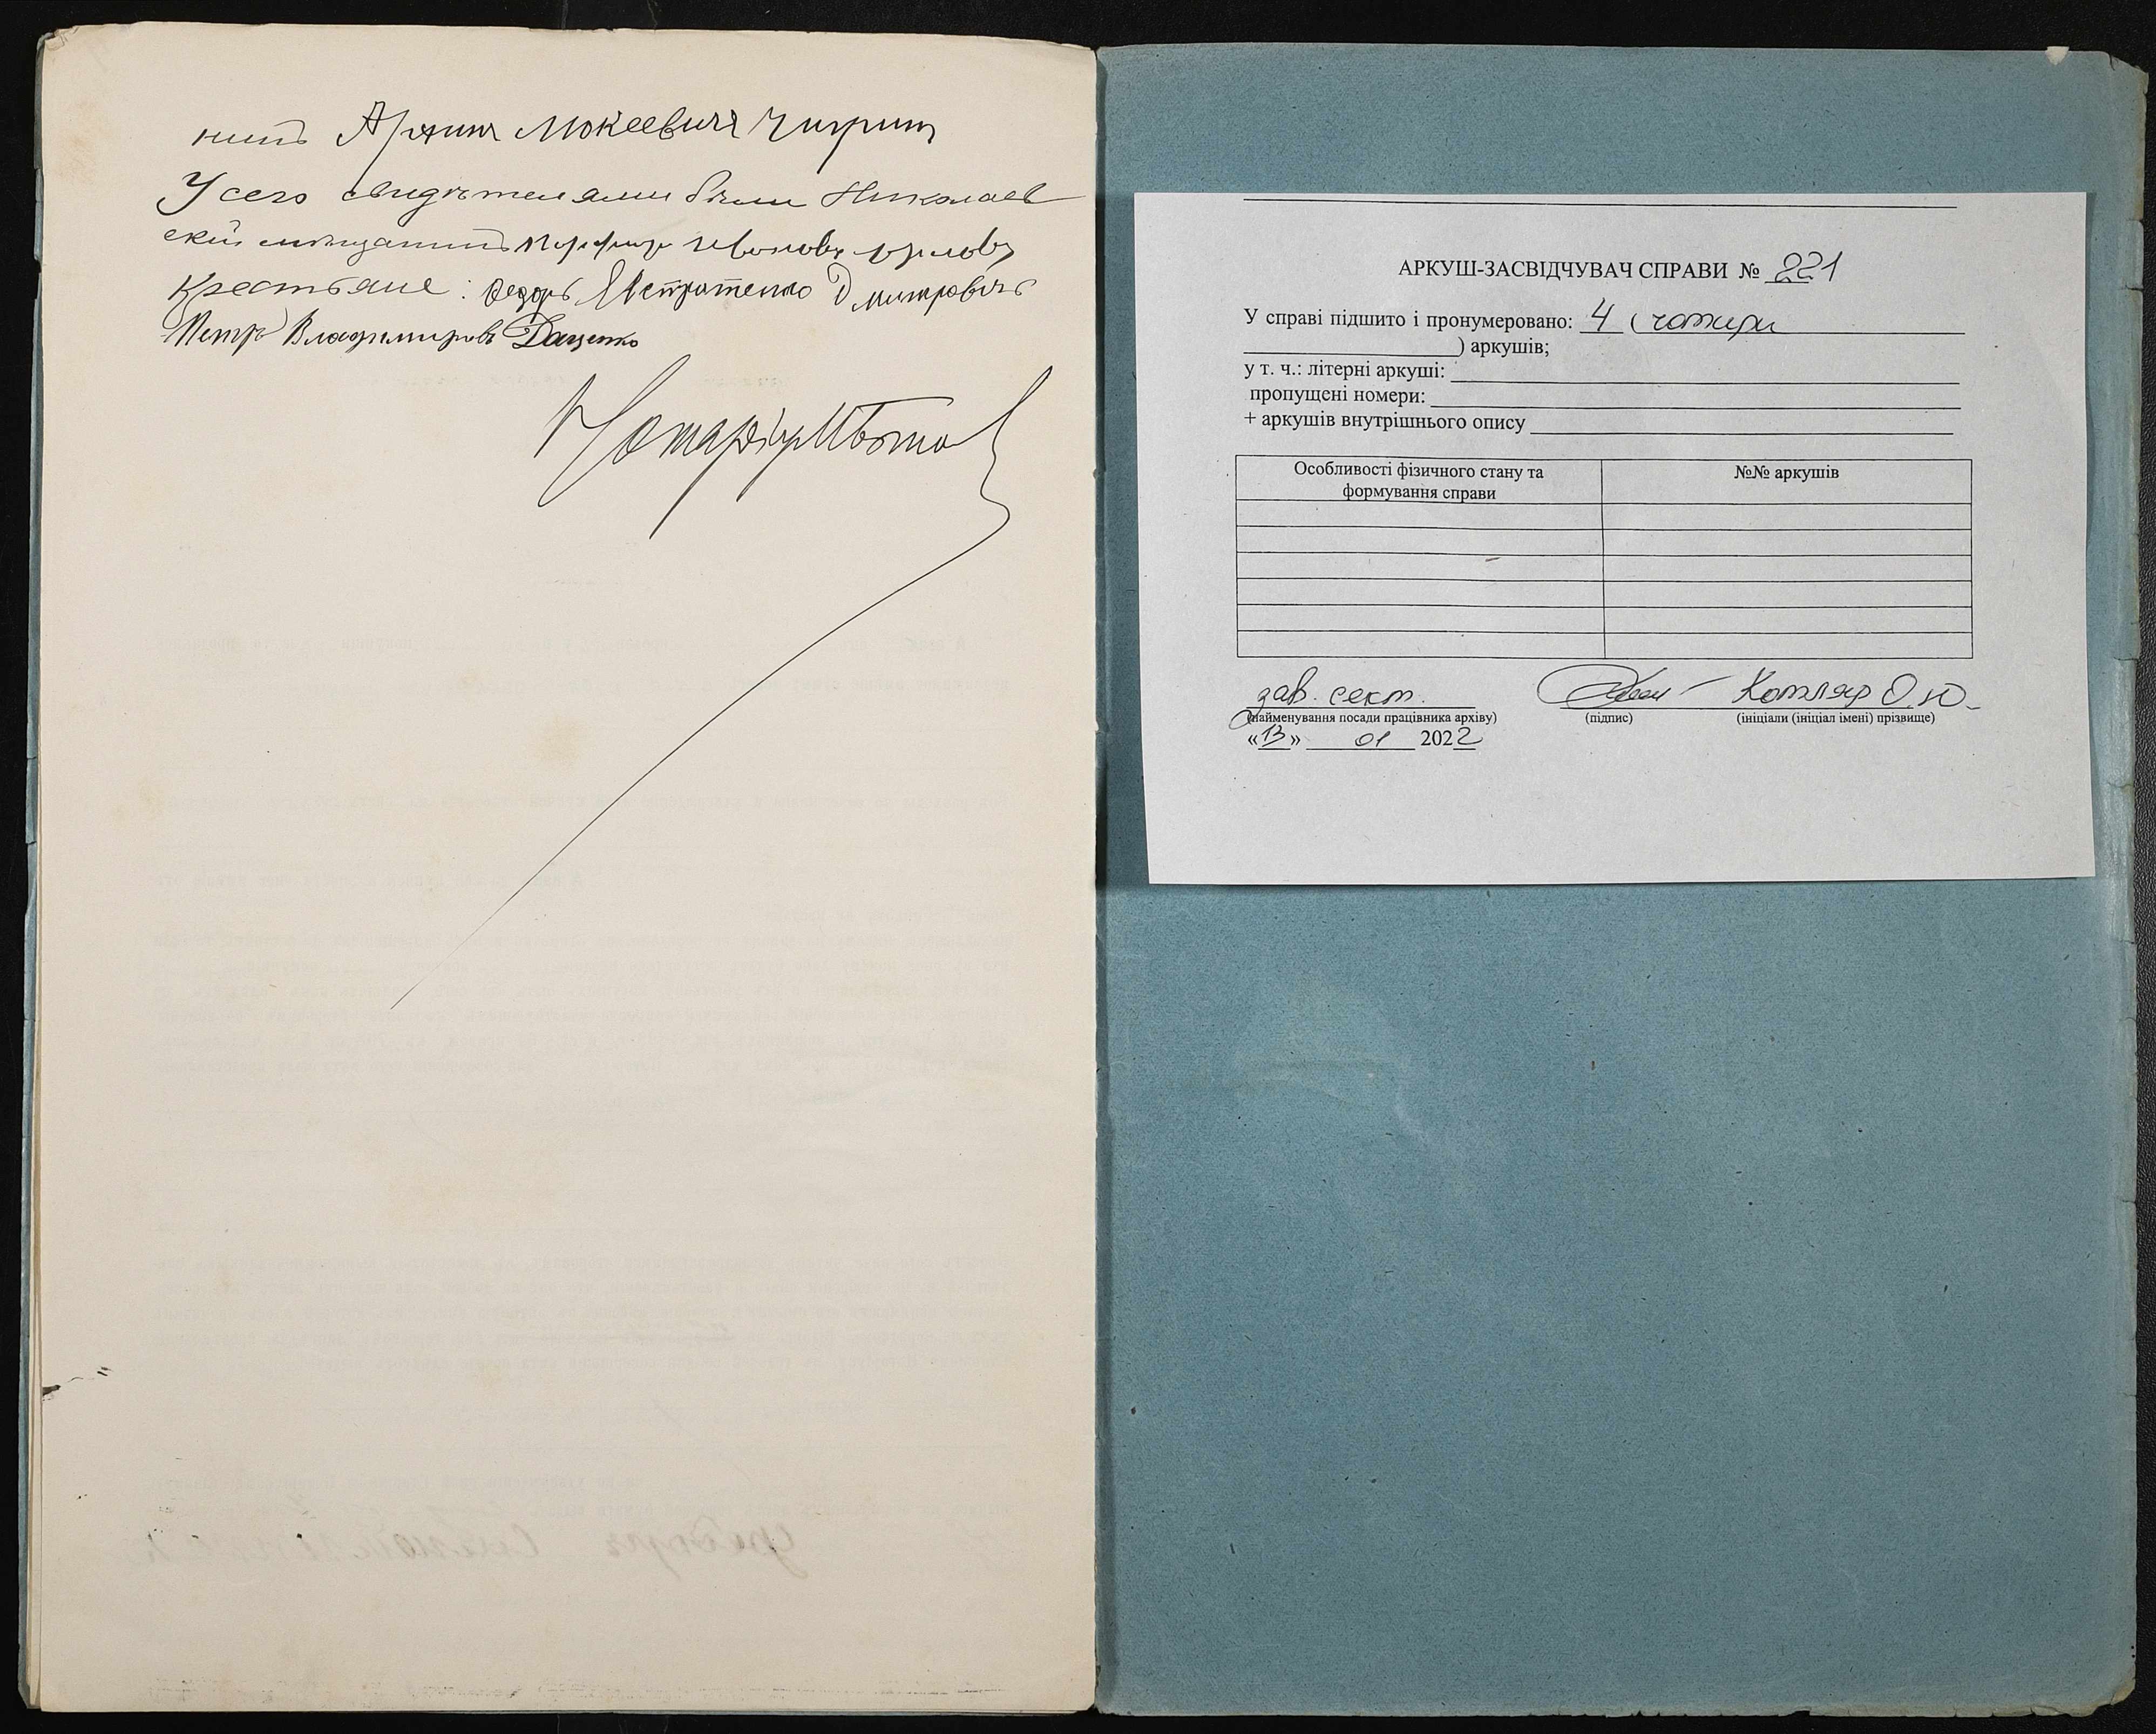 нинъ Мокеевичъ
У сего свидѣтелями были Николаев
скій мѣщанинъ
Крестьяне: Федоръ Евстратенко Дмитровичъ
Петръ Владимировъ Даценко
Нотаріусъ
АРКУШ-ЗАСВІДЧУВАЧ СПРАВИ № 221
У справі підшито і пронумеровано: 4 ( чотири
) аркушів;
у т. ч.: літерні аркуші:
пропущені номери:
+ аркушів внутрішнього опису
Особливості фізичного стану та
формування справи
№№ аркушів
зав. сект. Котляр О.Ю.
(найменування посади працівника архіву) (підпис) (ініціали (ініціал імені) прізвище)
«13» 01 2022